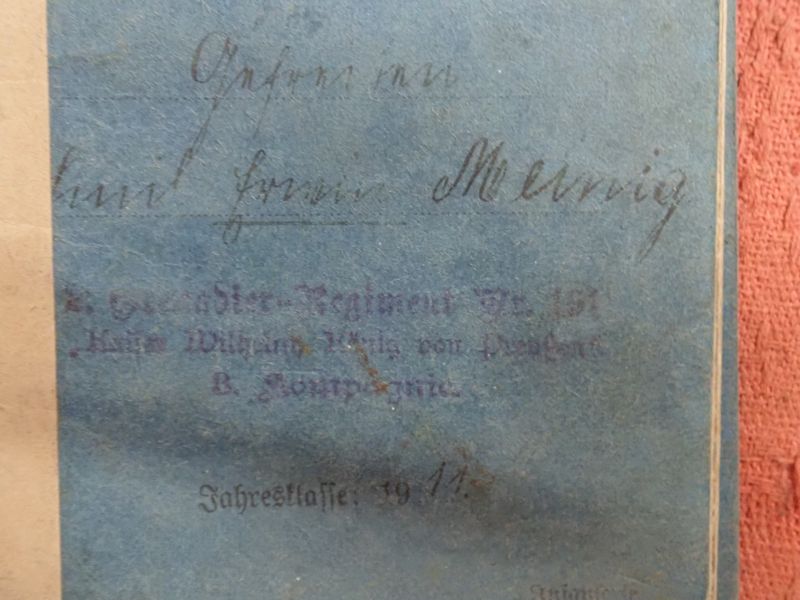 Gefreiten
Erwin Meinig
2. Grenadier-Regiment Nr. 101
„Kaiser Wilhelm, König von Preußen“
8. Kompagnie.
Jahresklasse: 1911.